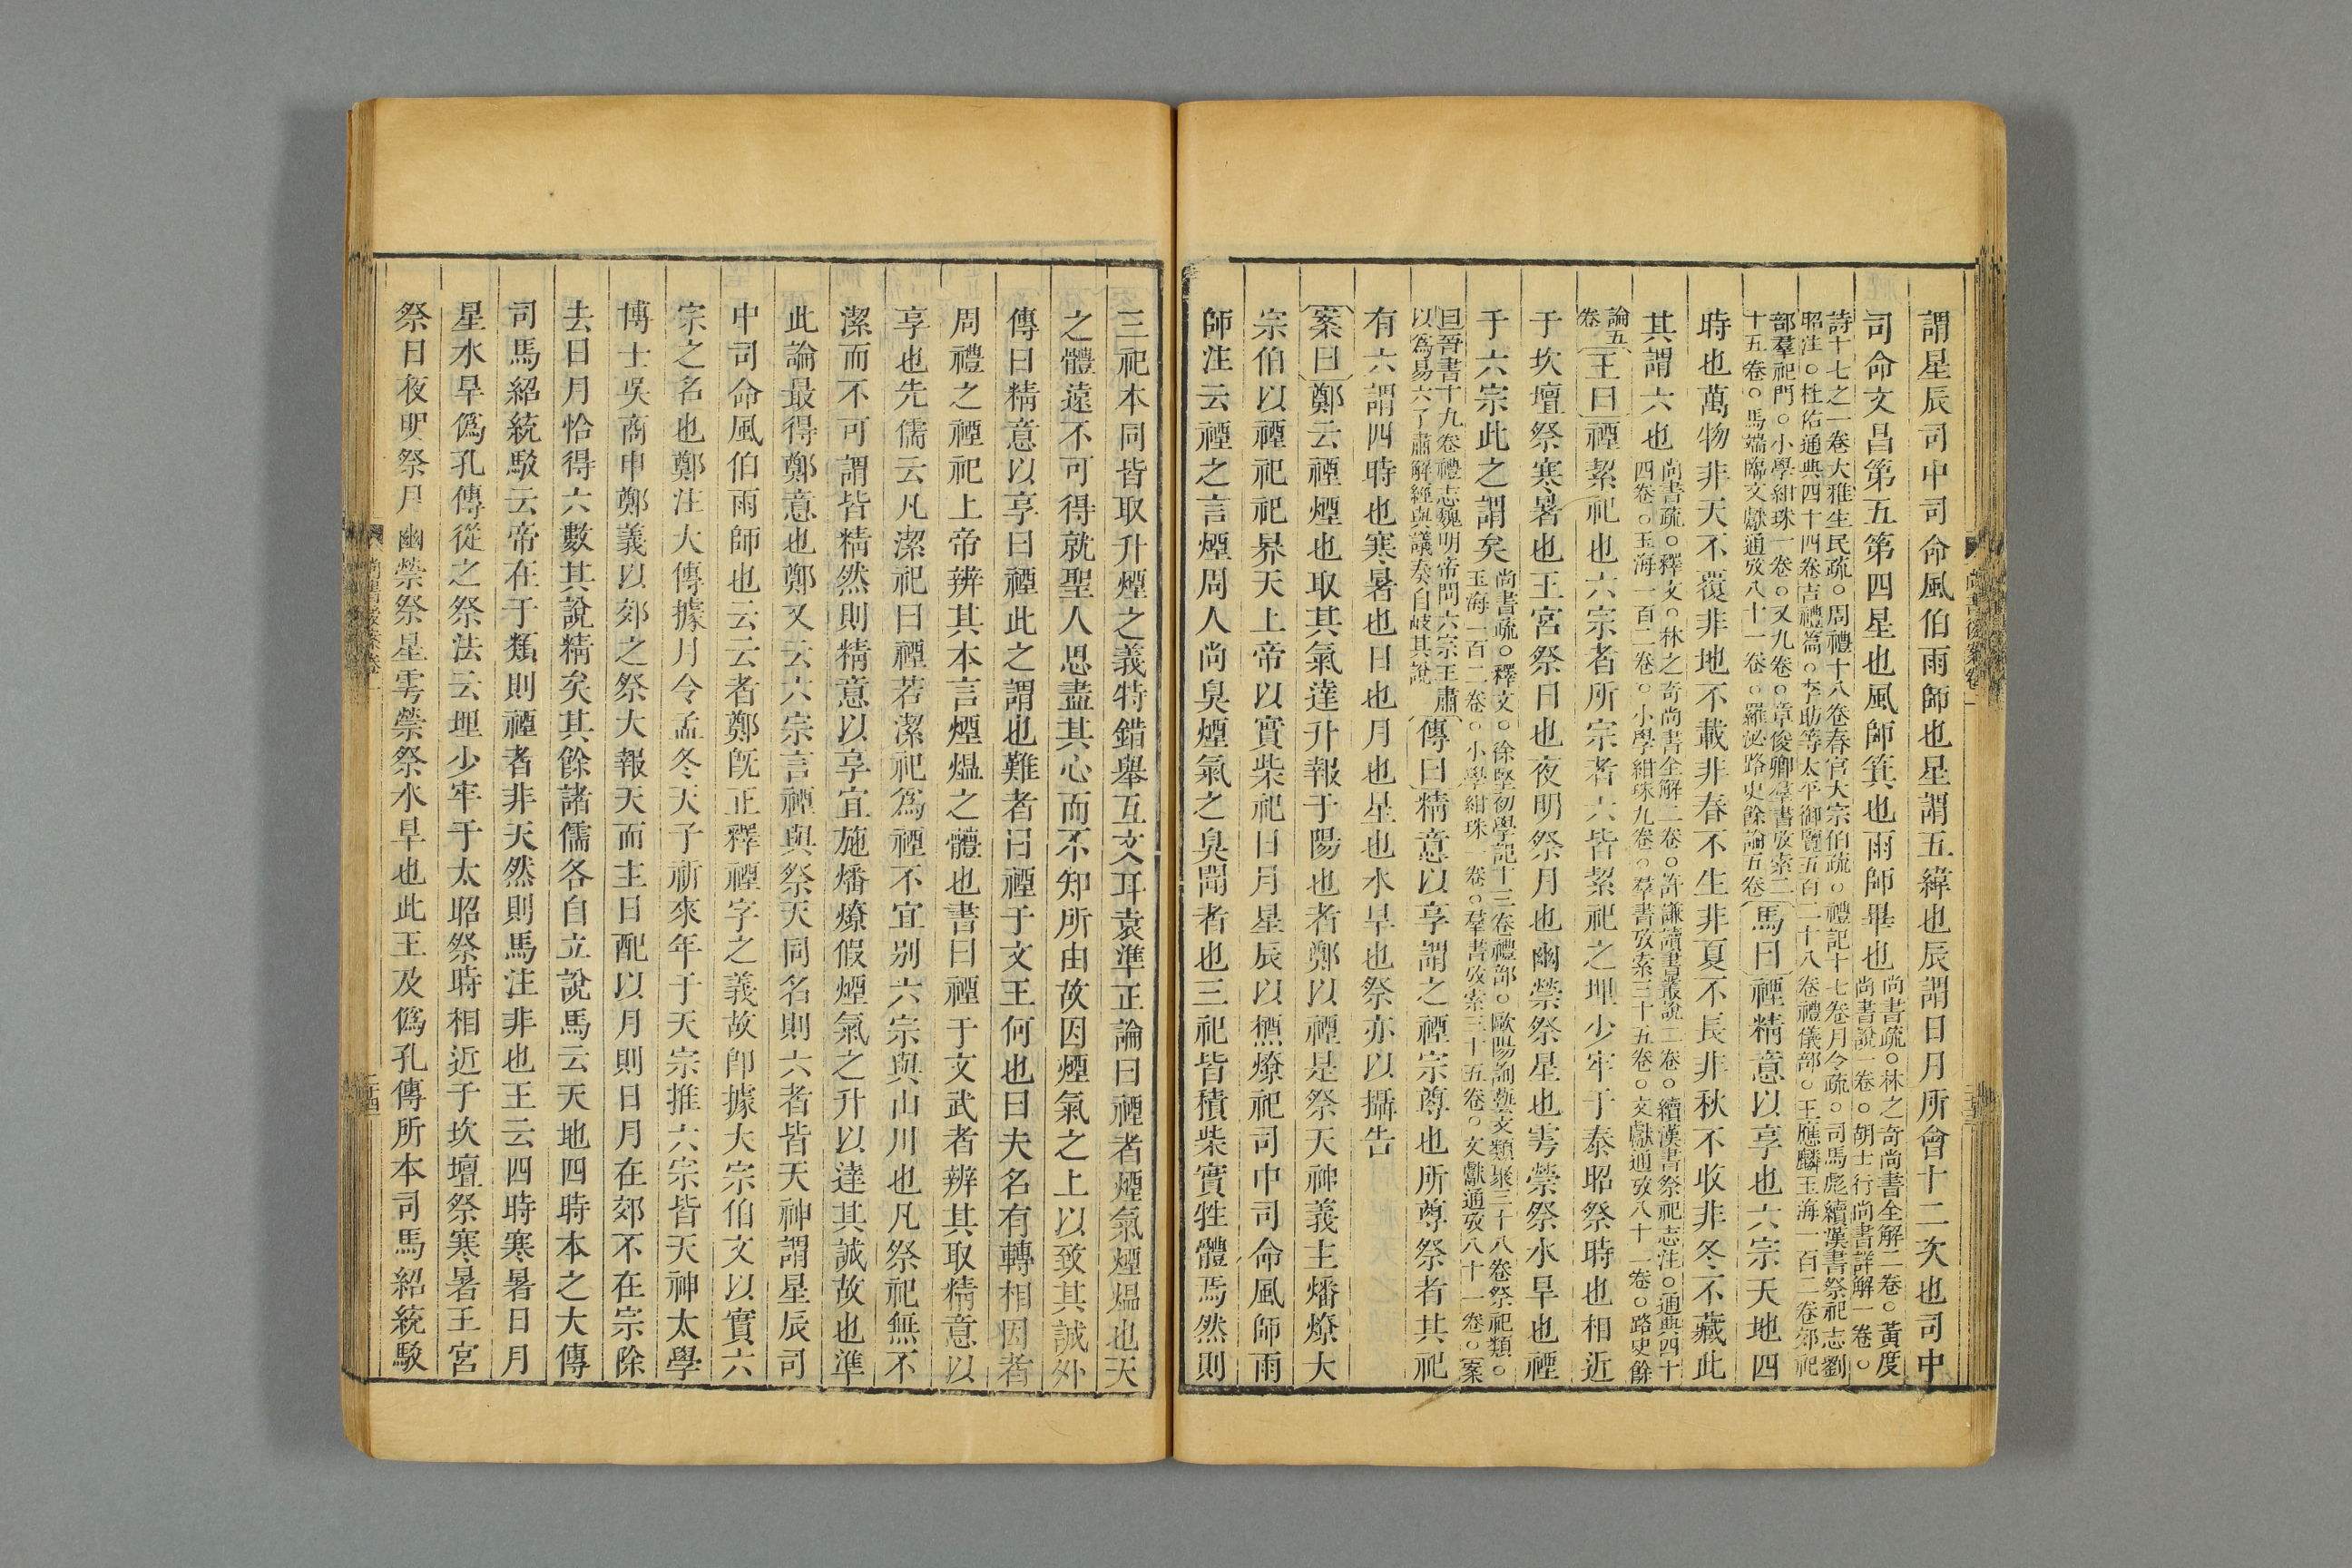 謂星辰司中司命風伯雨師也星謂五緯也辰謂日月所會十二次也司中
司命文昌第五第四星也風師箕也雨師畢也尚書疏○林之奇尚書全解二卷○黃度
尚書說一卷○胡士行尚書詳解一卷○
詩十七之一卷大雅生民疏○周禮十八卷春官大宗伯疏○禮記十七卷月令疏○司馬彪續漢書祭祀志劉
昭注○杜佑通典四十四卷吉禮篇○李昉等太平御覽五百二十八卷禮儀部○王應麟玉海一百二卷郊祀
部羣祀門○小學紺珠一卷○又九卷○章俊卿羣書攷索二
十五卷○馬端臨文獻通攷八十一卷○羅泌路史餘論五卷
馬曰禋精意以享也六宗天地四
時也萬物非天不覆非地不載非春不生非夏不長非秋不收非冬不藏此
其謂六也尚書疏○釋文○林之奇尚書全解二卷○許謙讀書叢說二卷○續漢書祭祀志注○通典四十
四卷○玉海一百二卷○小學紺珠九卷○羣書攷索三十五卷○文獻通攷八十一卷○路史餘
論五
卷
王曰禋絜祀也六宗者所宗者六皆絜祀之埋少牢于泰昭祭時也相近
于坎壇祭寒暑也王宮祭日也夜明祭月也幽禜祭星也雩禜祭水旱也禋
于六宗此之謂矣尚書疏○釋文○徐堅初學記十三卷禮部○歐陽詢藝文類聚三十八卷祭祀類○
玉海一百二卷○小學紺珠一卷○羣書攷索三十五卷○文獻通攷八十一卷○案
曰晉書十九卷禮志魏明帝問六宗王肅
以爲易六子肅解經與議奏自歧其說
傳曰精意以享謂之禋宗尊也所尊祭者其祀
有六謂四時也寒暑也日也月也星也水旱也祭亦以攝告
案曰鄭云禋煙也取其氣達升報于陽也者鄭以禋是祭天神義主燔燎大
宗伯以禋祀祀昦天上帝以實柴祀日月星辰以槱燎祀司中司命風師雨
師注云禋之言煙周人尚臭煙氣之臭聞者也三祀皆積柴實牲體焉然則
三祀本同皆取升煙之義特錯舉互文耳袁準正論曰禋者煙氣煙熅也天
之體遠不可得就聖人思盡其心而不知所由故因煙氣之上以致其誠外
傳曰精意以享曰禋此之謂也難者曰禋于文王何也曰夫名有轉相因者
周禮之禋祀上帝辨其本言煙熅之體也書曰禋于文武者辨其取精意以
享也先儒云凡潔祀曰禋若潔祀爲禋不宜别六宗與山川也凡祭祀無不
潔而不可謂皆精然則精意以享宜施燔燎假煙氣之升以達其誠故也準
此論最得鄭意也鄭又云六宗言禋與祭天同名則六者皆天神謂星辰司
中司命風伯雨師也云云者鄭旣正釋禋字之義故卽據大宗伯文以實六
宗之名也鄭注大傳據月令孟冬天子祈來年于天宗推六宗皆天神太學
博士吳商申鄭義以郊之祭大報天而主日配以月則日月在郊不在宗除
去日月恰得六數其說精矣其餘諸儒各自立說馬云天地四時本之大傳
司馬紹統駁云帝在于類則禋者非天然則馬注非也王云四時寒暑日月
星水旱僞孔傳從之祭法云埋少牢于太昭祭時相近于坎壇祭寒暑王宮
祭日夜明祭月幽禜祭星雩禜祭水旱也此王及僞孔傳所本司馬紹統駁